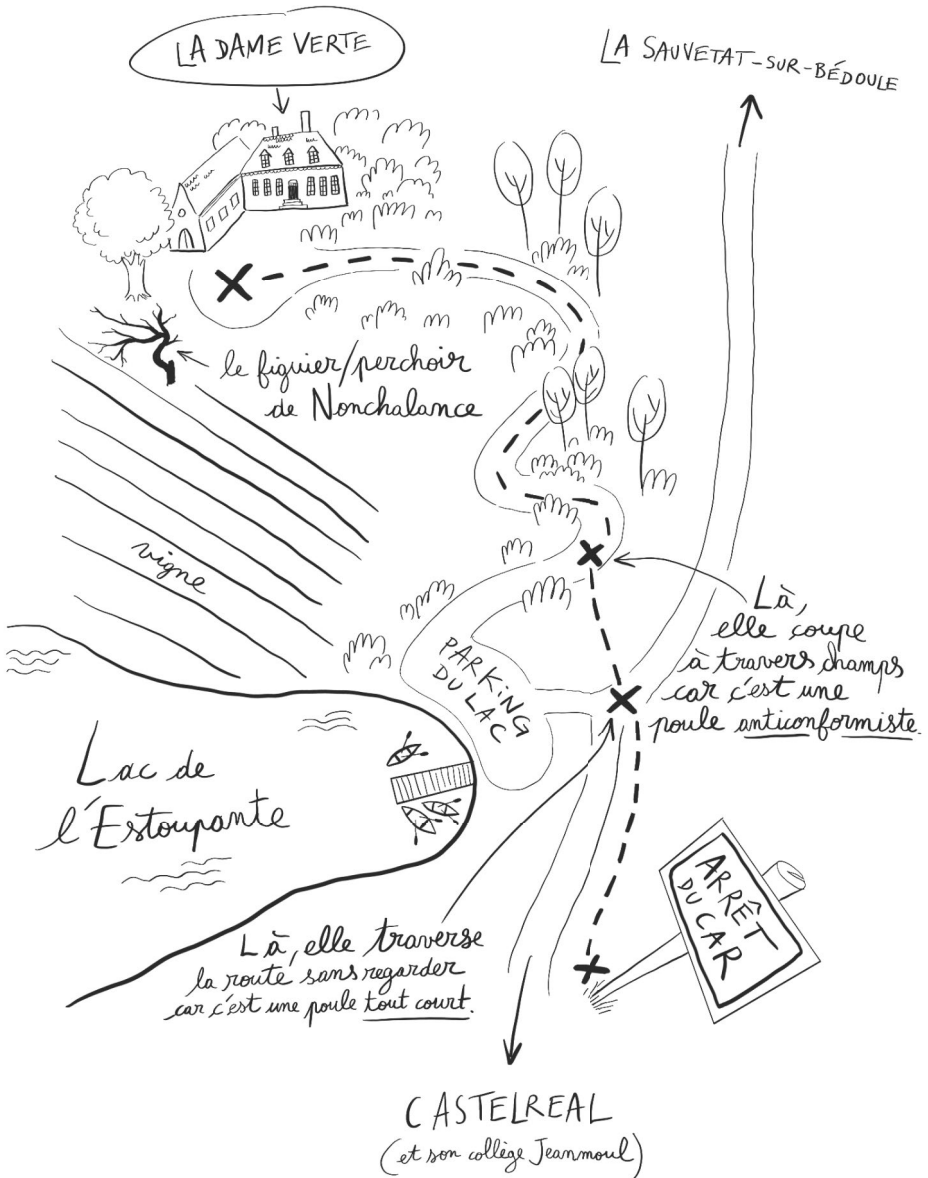 LA DAME VERTE
LA SAUVETAT-SUR-BÉDOULE
le figuier/perchoir
de Nonchalance
vigne
Là,
elle coupe
à travers champs
car c'est une
poule anticonformiste.
PARKING
DU LAC
Lac de
l'Estoupante
ARRÊT
DU CAR
Là, elle traverse
la route sans regarder
car c'est une poule tout court.
CASTELREAL
(et son collège Jeanmoul)